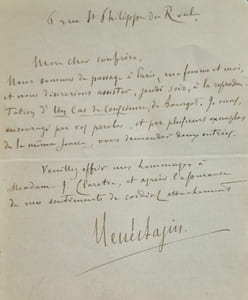 6 rue St Philippe du Roule
Mon cher confrère,
Nous sommes de passage à Paris, ma femme et moi,
et nous désirerions assister, jeudi soir, à la représen-
tation d'Un Cas de Conscience, de Bourget. Je viens,
encouragé par vos paroles, et par plusieurs exemples
de la même source, vous demander deux entrées.
Veuillez offrir nos hommages à
Madame J. Claretie, et agréer l'assurance
de mes sentiments de cordial attachement